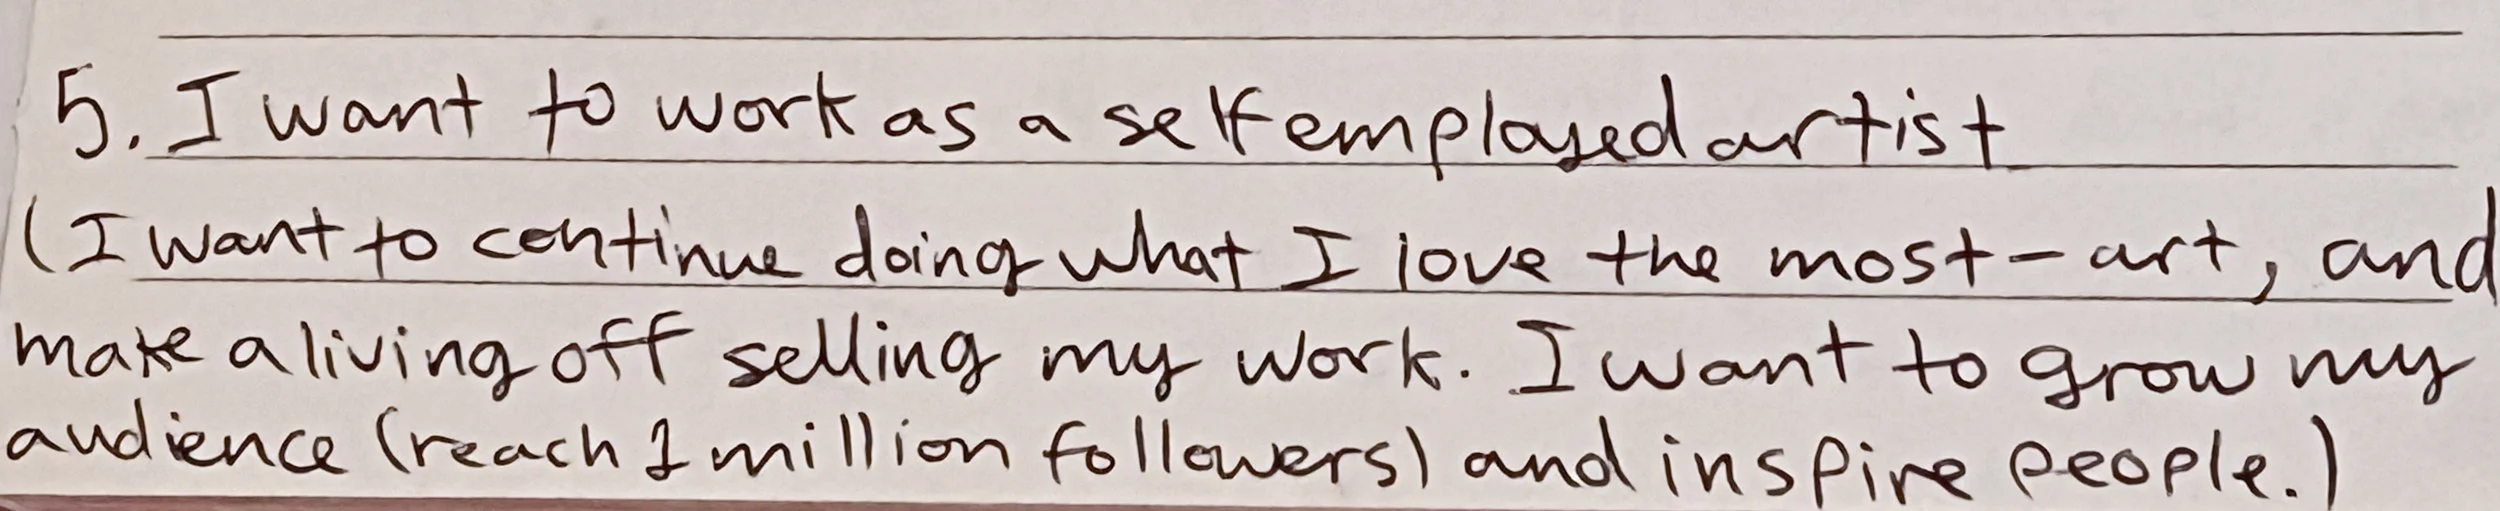 5. I want to work as a self employed artist
(I want to continue doing what I love the most - art, and
make a living off selling my work. I want to grow my
audience (reach 1 million followers) and inspire people.)